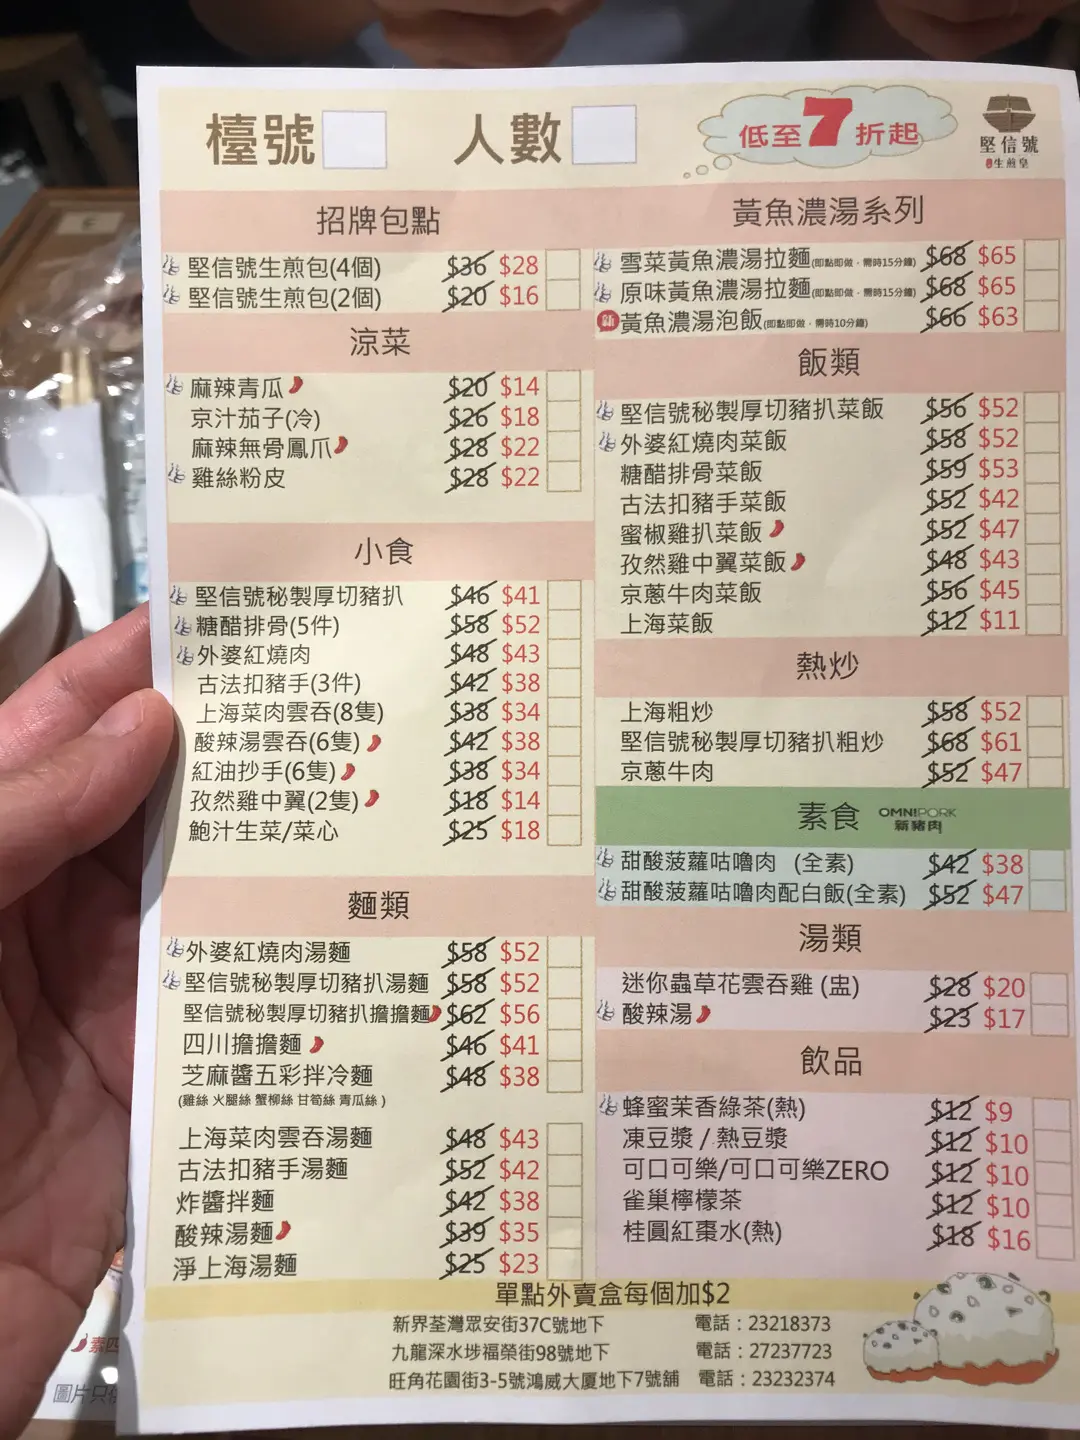 檯號
人數
低至7折起
堅信號
生煎皇
招牌包點
堅信號生煎包(4個) $36 $28
堅信號生煎包(2個) $20 $16
涼菜
麻辣青瓜 $20 $14
京汁茄子(冷) $26 $18
麻辣無骨鳳爪 $28 $22
雞絲粉皮 $28 $22
小食
堅信號秘製厚切豬扒 $46 $41
糖醋排骨(5件) $58 $52
外婆紅燒肉 $48 $43
古法扣豬手(3件) $42 $38
上海菜肉雲吞(8隻) $38 $34
酸辣湯雲吞(6隻) $42 $38
紅油抄手(6隻) $38 $34
孜然雞中翼(2隻) $18 $14
鮑汁生菜/菜心 $25 $18
麵類
外婆紅燒肉湯麵 $58 $52
堅信號秘製厚切豬扒湯麵 $58 $52
堅信號秘製厚切豬扒擔擔麵 $62 $56
四川擔擔麵 $46 $41
芝麻醬五彩拌冷麵 $48 $38
(雞絲 火腿絲 蟹柳絲 甘筍絲 青瓜絲)
上海菜肉雲吞湯麵 $48 $43
古法扣豬手湯麵 $52 $42
炸醬拌麵 $42 $38
酸辣湯麵 $39 $35
淨上海湯麵 $25 $23
黃魚濃湯系列
雪菜黃魚濃湯拉麵(即點即做，需時15分鐘) $68 $65
原味黃魚濃湯拉麵(即點即做，需時15分鐘) $68 $65
新 黃魚濃湯泡飯(即點即做，需時10分鐘) $66 $63
飯類
堅信號秘製厚切豬扒菜飯 $56 $52
外婆紅燒肉菜飯 $58 $52
糖醋排骨菜飯 $59 $53
古法扣豬手菜飯 $52 $42
蜜椒雞扒菜飯 $52 $47
孜然雞中翼菜飯 $48 $43
京蔥牛肉菜飯 $56 $45
上海菜飯 $12 $11
熱炒
上海粗炒 $58 $52
堅信號秘製厚切豬扒粗炒 $68 $61
京蔥牛肉 $52 $47
素食 OMNIPORK
新豬肉
甜酸菠蘿咕嚕肉 (全素) $42 $38
甜酸菠蘿咕嚕肉配白飯(全素) $52 $47
湯類
迷你蟲草花雲吞雞 (盅) $28 $20
酸辣湯 $23 $17
飲品
蜂蜜茉香綠茶(熱) $12 $9
凍豆漿 / 熱豆漿 $12 $10
可口可樂/可口可樂ZERO $12 $10
雀巢檸檬茶 $12 $10
桂圓紅棗水(熱) $18 $16
單點外賣盒每個加$2
新界荃灣眾安街37C號地下 電話：23218373
九龍深水埗福榮街98號地下 電話：27237723
旺角花園街3-5號鴻威大廈地下7號舖 電話：23232374
素四
圖片只